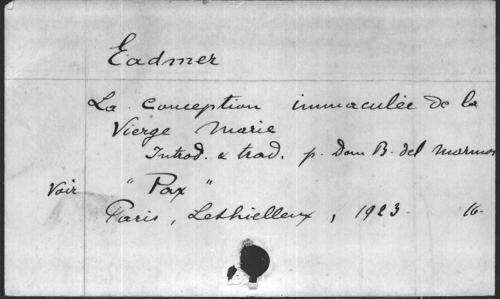 Eadmer
La conception immaculée de la
Vierge Marie
Introd. & trad. p. Dom B. del Marmol
Voir " Pax "
Paris, Lethielleux, 1923. 16-